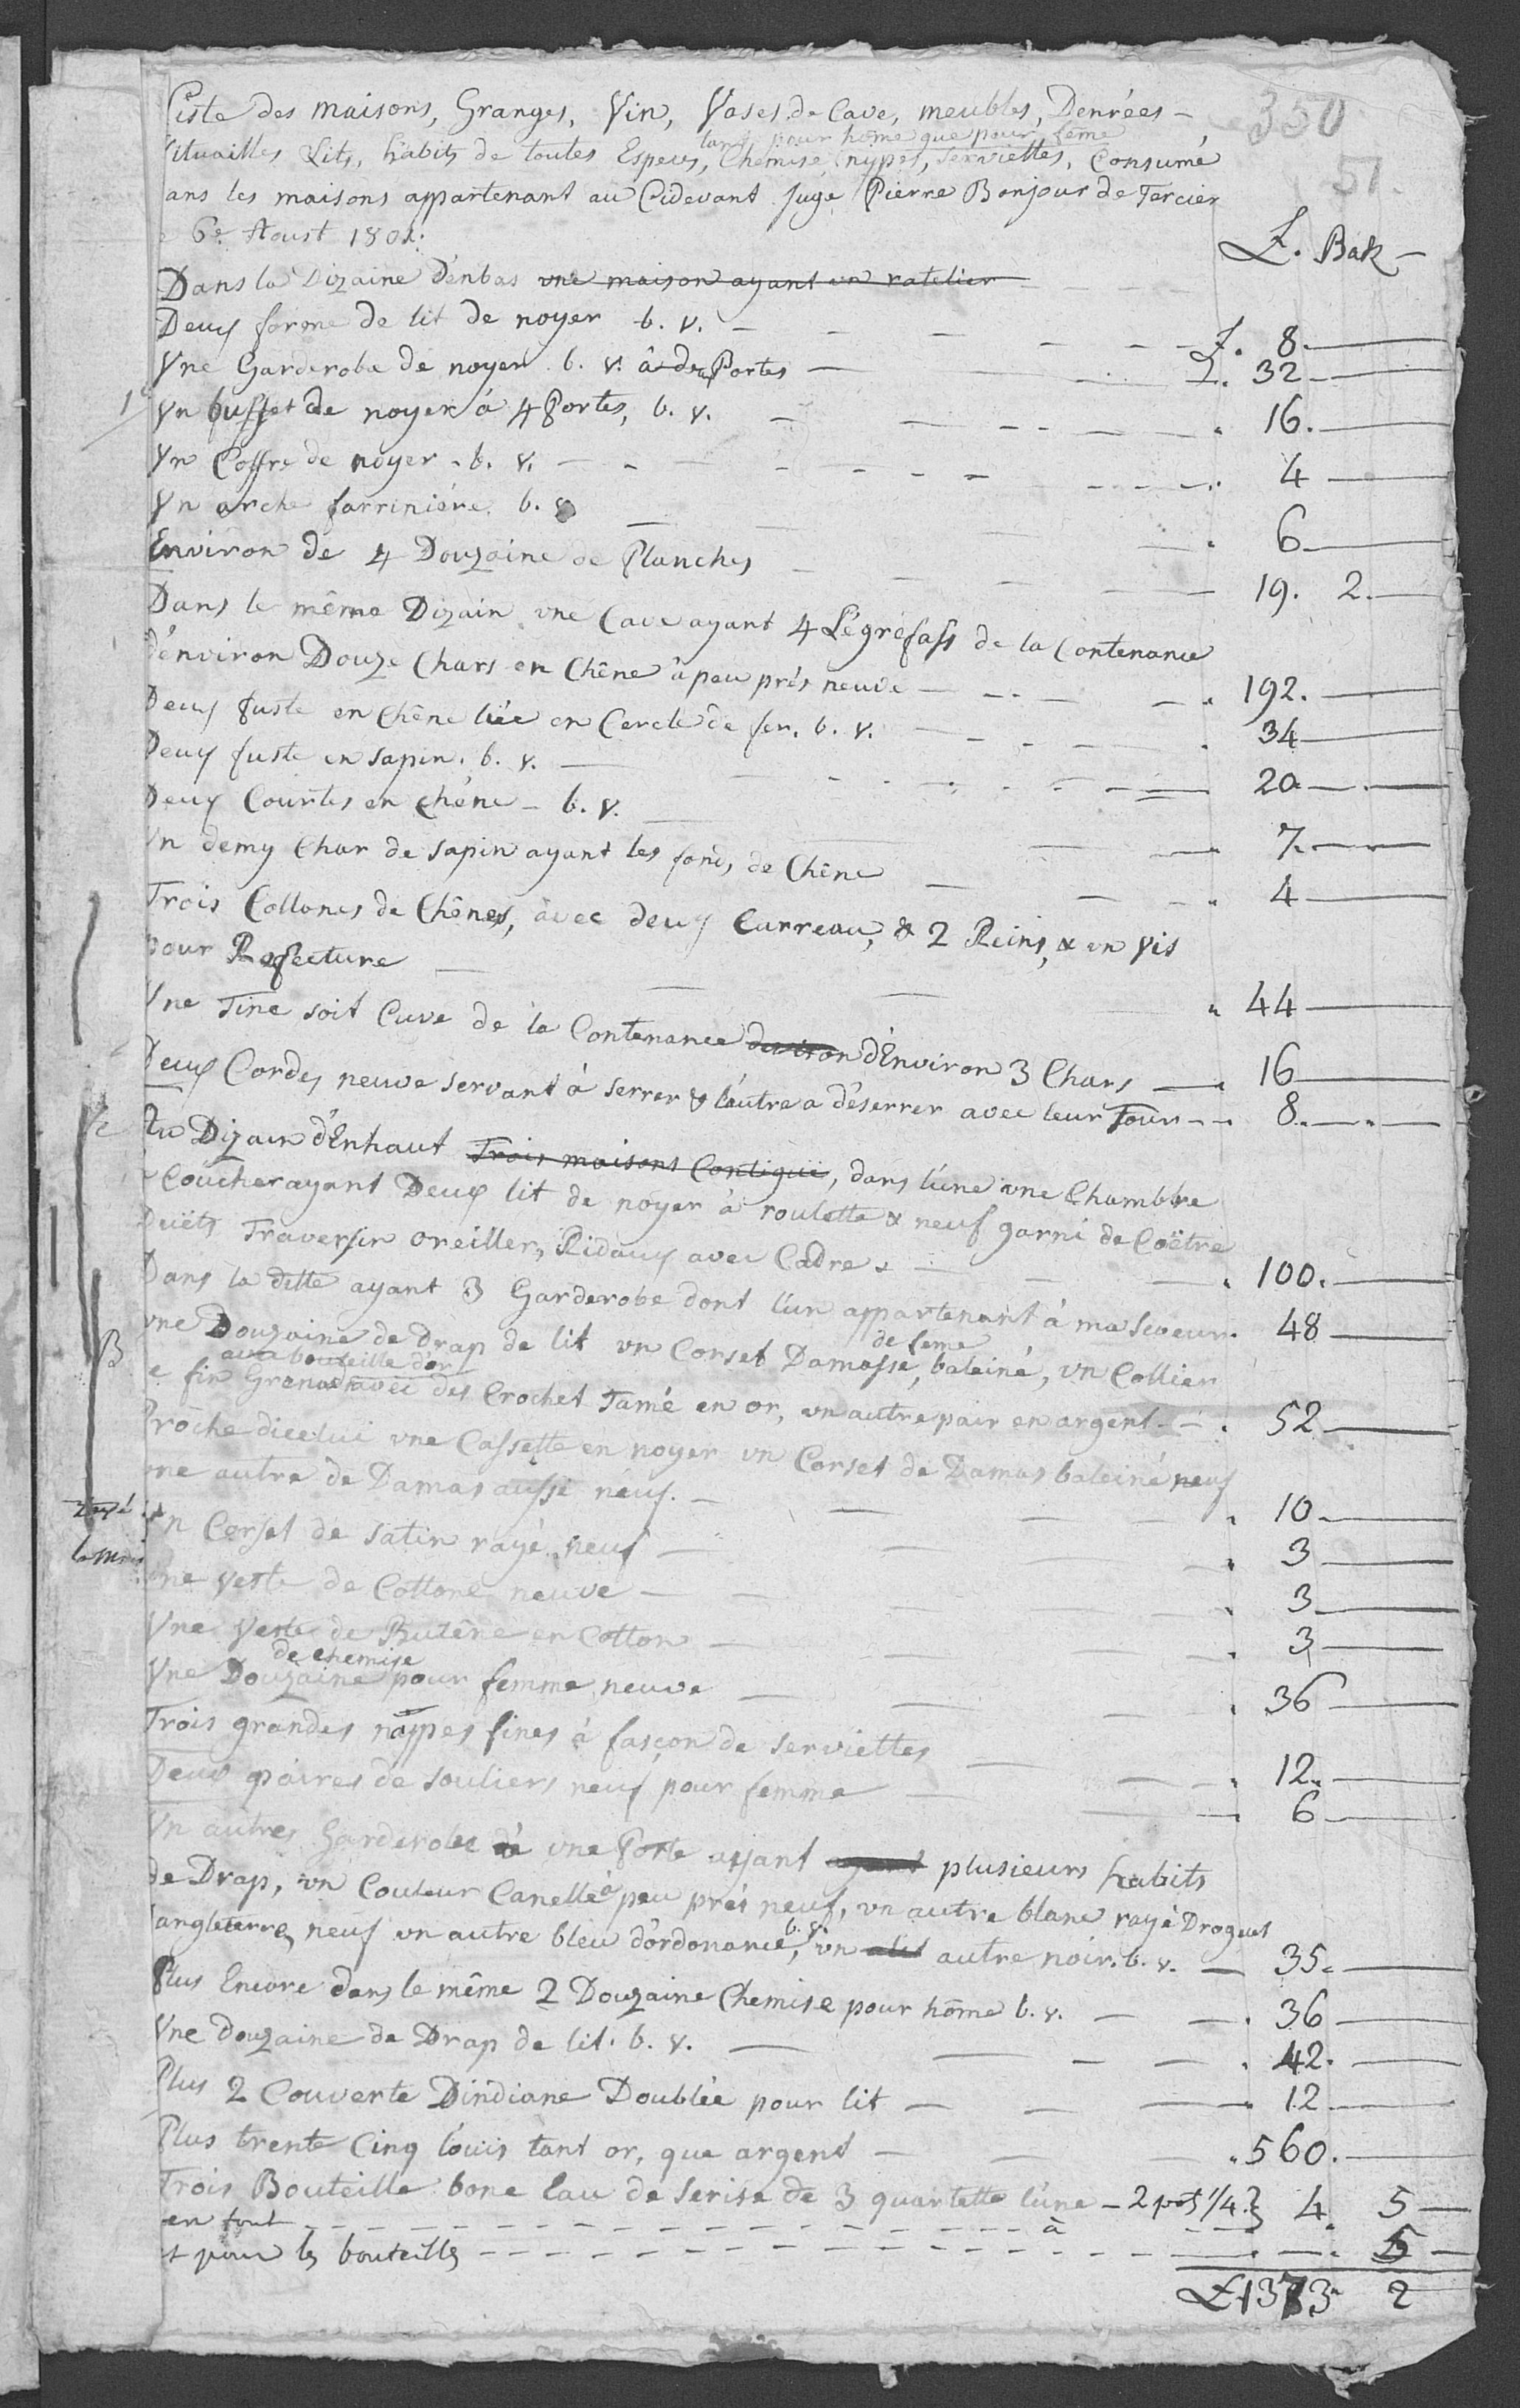 350
51.
Liste des maisons, Granges, Vin, Vases de Cave, meubles, Denrées –
tant pour home que pour feme
Vituailles Lits, habits de toutes Especes, Chemise, nypes, serviettes, Consumé
ans les maisons appartenant au Cidevant Juge Pierre Bonjour de Fercier
e 6e. Aoust 1802.
£. Batz –
Dans la Dizaine d'enbas une maison ayant un ratelier
Deux forme de lit de noyer b. v. – £. 8. –
Vne Garderobe de noyer b. v. à deux Portes – £. 32 –
Vn buffet de noyer à 4 Portes, b. v. – 16. –
Vn Coffre de noyer. b. v. – 4 –
Vn arche farriniére. b. v. – 6 –
Environ de 4 Douzaine de Planches – 19. 2. –
Dans le même Dizain vne Cave ayant 4 Légréfass de la Contenance
d'environ Douze Chars en Chêne à peu prés neuve – 192. –
Deux fuste en Chêne liée en Cercle de fer. b. v. – 34 –
Deux fuste en sapin. b. v. – 20 –
Deux Courtes en chéne – b. v. – 7. –
Vn demy Char de sapin ayant les fonds de Chêne – 4 –
Trois Collones de Chênes, avec deux Carreau, & 2 Reins, & vn vis
pour Refecture – 44 –
Vne Tine soit Cuve de la Contenance d'Environ 3 Chars – 16 –
Deux Cordes neuve servant à serrer & l'autre a déserrer avec leur Tour – 8. –
Au Dizain d'Enhaut Trois maisons Contiguë, dans l'une vne Chambre
à Coucher ayant Deux lit de noyer à roulette & neuf garni de Coëtre
Duëts Traversin oreiller, Ridaux avec Cadre – 100. –
Dans la dette ayant 3 Garderobe dont l'un appartenant à ma soeur. 48 –
de feme
vne Douzaine de Drap de lit vn Corset Damasse, baleiné, vn Collier
avec bouteille d'or
e fin Grenad avec des Crochet Tamé en or, vn autre pair en argent – 52 –
B
Proche dicelui vne Cassette en noyer vn Corset de Damas baleiné neuf
vne autre de Damas aussi néuf. – 10 –
Vn Corset de satin rayé neuf – 3 –
Vne veste de Cottone neuve – 3 –
Vne Veste de Butêne en Cotton – 3 –
de chemise
Vne Douzaine pour femme neuve – 36 –
Trois grandes nappes fines à fascon de serviettes – 12. –
Deux paires de souliers neuf pour femme – 6 –
Vn autres Garderobe à vne Porte ayant ayant plusieurs habits
de Drap, vn Couleur Canelle à peu prés neuf, vn autre blanc rayé Droguet
b. v.
dangleterre, neuf vn autre bleu d'ordonance, vn autre noir. b. v. – 35. –
Plus Encore dans le même 2 Douzaine Chemise pour hôme b. v. – 36 –
Vne douzaine de Drap de lit. b. v. – 42. –
Plus 2 Couverte Dindiane Doublée pour lit – 12 –
Plus trente Cinq louis tant or, que argent – 560. –
Trois Bouteille bone Eau de serise de 3 quartette l'une – 2 pot 1/4 } 4. 5 –
en tout – à
et pour les bouteilles – 5 –
£ 1373 2